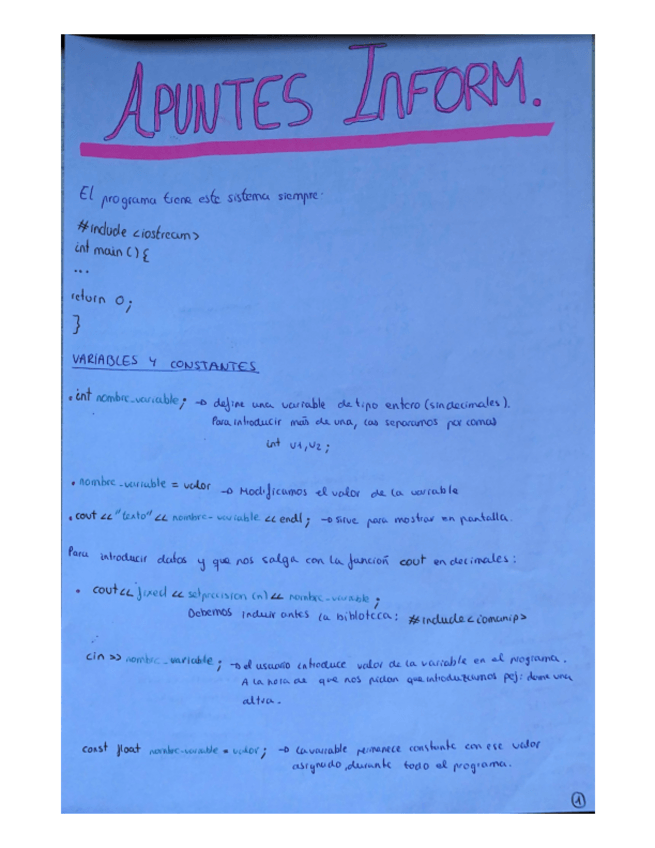 APUNTES INFORM.
El programa tiene este sistema siempre:
#include <iostream>
int main () {
...
return 0;
}
VARIABLES Y CONSTANTES
• int nombre_variable; → define una variable de tipo entero (sin decimales).
Para introducir más de una, las separamos por comas
int v1, v2;
• nombre_variable = valor → Modificamos el valor de la variable
• cout << "texto" << nombre_variable << endl; → sirve para mostrar en pantalla.
Para introducir datos y que nos salga con la función cout en decimales:
• cout << fixed << setprecision (n) << nombre_variable;
Debemos incluir antes la biblioteca: #include <iomanip>
cin >> nombre_variable; → el usuario introduce valor de la variable en el programa.
A la hora de que nos pidan que introduzcamos pej: dame una
altra.
const float nombre_variable = valor; → La variable permanece constante con ese valor
asignado, durante todo el programa.
1